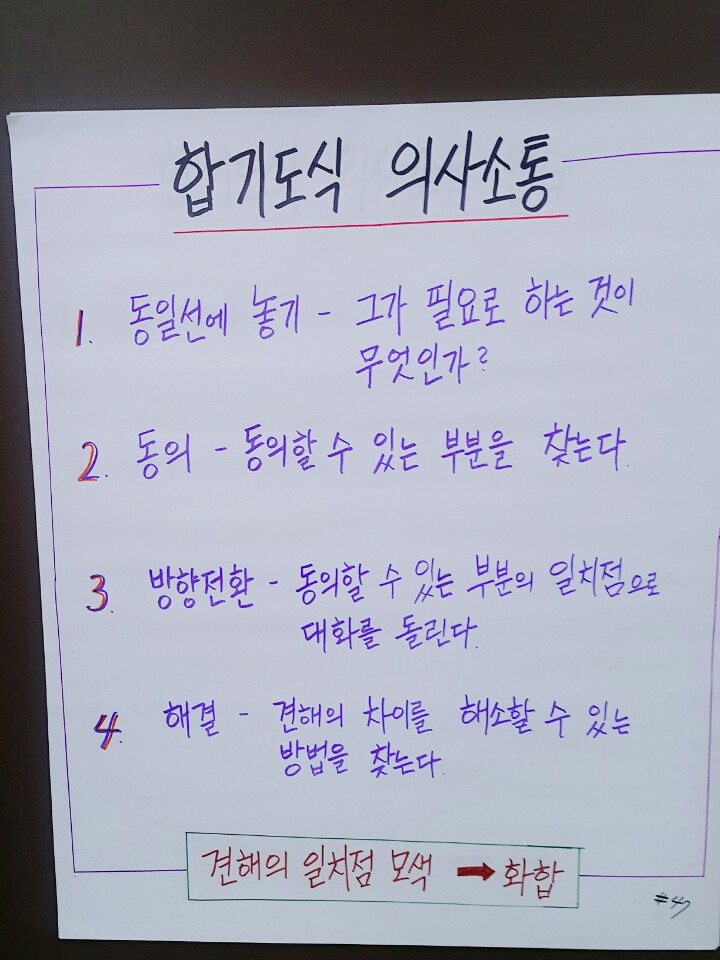 합기도식 의사소통
1. 동일선에 놓기 - 그가 필요로 하는 것이
무엇인가?
2. 동의 - 동의할 수 있는 부분을 찾는다.
3. 방향전환 - 동의할 수 있는 부분의 일치점으로
대화를 돌린다.
4. 해결 - 견해의 차이를 해소할 수 있는
방법을 찾는다.
견해의 일치점 모색 ➡ 화합